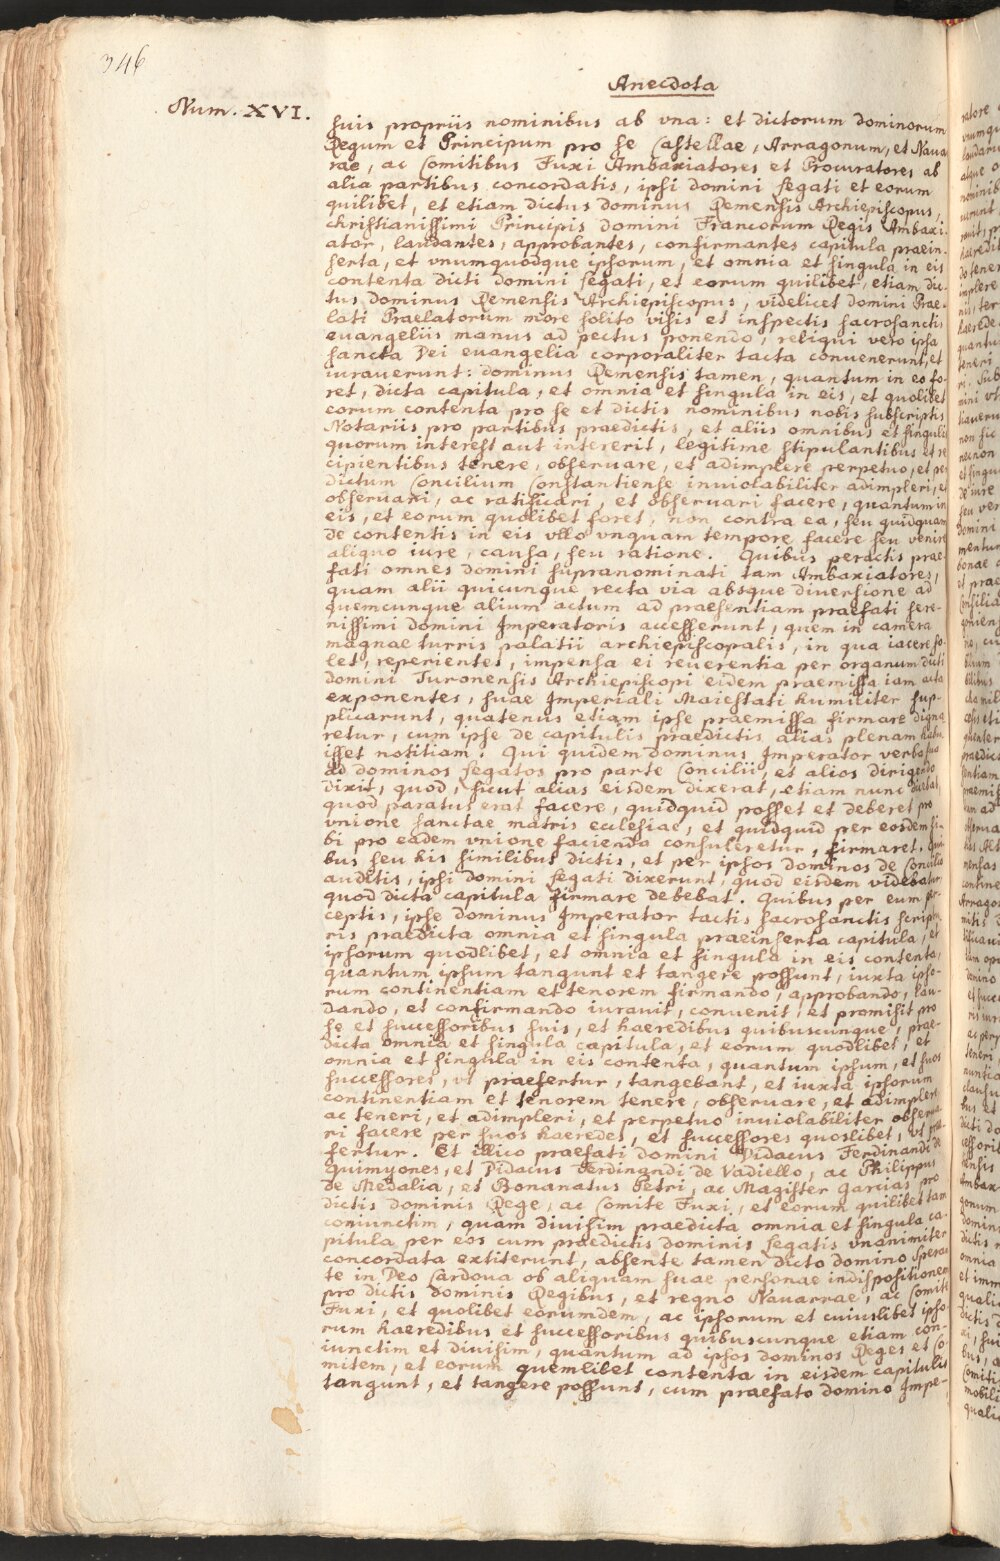 346
Anecdota
Num. XVI.
suis propriis nominibus ab vna: et dictorum dominorum
Regum et Principum pro se Castellae, Arragonum, et Nava
rae, ac Comitibus Fuxi Ambaxiatores et Procuratores ab
alia partibus concordatis, ipsi domini Legati et eorum
quilibet, et etiam dictus dominus Remensis Archiepiscopus,
christianissimi Principis domini Francorum Regis Ambaxi-
ator, laudantes, approbantes, confirmantes capitula praein-
serta, et vnumquodque ipsorum, et omnia et singula in eis
contenta dicti domini Legati, et eorum quilibet, etiam dic-
tus dominus Remensis Archiepiscopus, videlicet domini Prae-
lati Praelatorum more solito visis et inspectis sacrosanctis
euangeliis manus ad pectus ponendo, reliqui vero ipsa
sancta Dei euangelia corporaliter tacta conuenerunt, et
iurauerunt: dominus Remensis tamen, quantum in eo fo-
ret, dicta capitula, et omnia et singula in eis, et quolibet
eorum contenta pro se et dictis nominibus nobis subscriptis
Notariis pro partibus praedictis, et aliis omnibus et singulis
quorum interest aut intererit, legitime stipulantibus et re
cipientibus tenere, obseruare, et adimplere perpetuo, et per
dictum Concilium Constantiense inuiolabiliter adimpleri, et
obseruari, ac ratificari, et obseruari facere, quantum in
eis, et eorum quolibet foret, non contra ea, seu quidquam
de contentis in eis vllo vnquam tempore facere seu venire
aliquo iure, causa, seu ratione. Quibus peractis prae-
fati omnes domini supranominati tam Ambaxiatores,
quam alii quicunque recta via absque diuersione ad
quemcunque alium actum ad praesentiam praefati sere-
nissimi domini Imperatoris accesserunt, quem in camera
magnae turris palatii archiepiscopalis, in qua iacere so-
let, reperientes, impensa ei reuerentia per organum dicti
domini Turonensis Archiepiscopi eidem praemissa iam acta
exponentes, suae Imperiali Maiestati humiliter sup-
plicarunt, quatenus etiam ipse praemissa firmare digna
retur, cum ipse de capitulis praedictis alias plenam habu
isset notitiam. Qui quidem dominus Imperator verba sua
ad dominos Legatos pro parte Concilii, et alios dirigendo
dixit, quod, sicut alias eisdem dixerat, etiam nunc dicebat,
quod paratus erat facere, quidquid posset et deberet pro
vnione sanctae matris ecclesiae, et quidquid per eosdem si-
bi pro eadem vnione facienda consuleretur, firmaret. Qui
bus seu his similibus dictis, et per ipsos dominos de Concilio
auditis, ipsi domini Legati dixerunt, quod eisdem videbatur,
quod dicta capitula firmare debebat. Quibus per eum per-
ceptis, ipse dominus Imperator tactis sacrosanctis scriptu-
ris praedicta omnia et singula praeinserta capitula, et
ipsorum quodlibet, et omnia et singula in eis contenta,
quantum ipsum tangunt et tangere possunt, iuxta ipso-
rum continentiam et tenorem firmando, approbando, lau-
dando, et confirmando iurauit, conuenit, et promisit pro
se et successoribus suis, et haeredibus quibuscunque, prae-
dicta omnia et singula capitula, et eorum quodlibet, et
omnia et singula in eis contenta, quantum ipsum, et suos
successores, vt praefertur, tangebant, et iuxta ipsorum
continentiam et tenorem tenere, obseruare, et adimplere
ac teneri, et adimpleri, et perpetuo inuiolabiliter obserua
ri facere per suos haeredes, et successores quoslibet, vt prae
fertur. Et illico praefati domini Didacus Ferdinandi de
Quimyones, et Didacus Ferdinandi de Vadiello, ac Philippus
de Medalia, et Bonanatus Petri, ac Magister Garcias pro
dictis dominis Rege, ac Comite Fuxi, et eorum quilibet tam
coniunctim, quam diuisim praedicta omnia et singula ca-
pitula per eos cum praedictis dominis Legatis vnanimiter
concordata extiterunt, absente tamen dicto domino Speran
te in Deo Cardoua ob aliquam suae personae indispositionem
pro dictis dominis Regibus, et regno Nauarrae, ac Comite
Fuxi, et quolibet eorumdem, ac ipsorum et cuiuslibet ipso-
rum haeredibus et successoribus quibuscunque etiam con-
iunctim et diuisim, quantum ad ipsos dominos Reges et Co-
mitem, et eorum quemlibet contenta in eisdem capitulis
tangunt, et tangere possunt, cum praefato domino Impe-